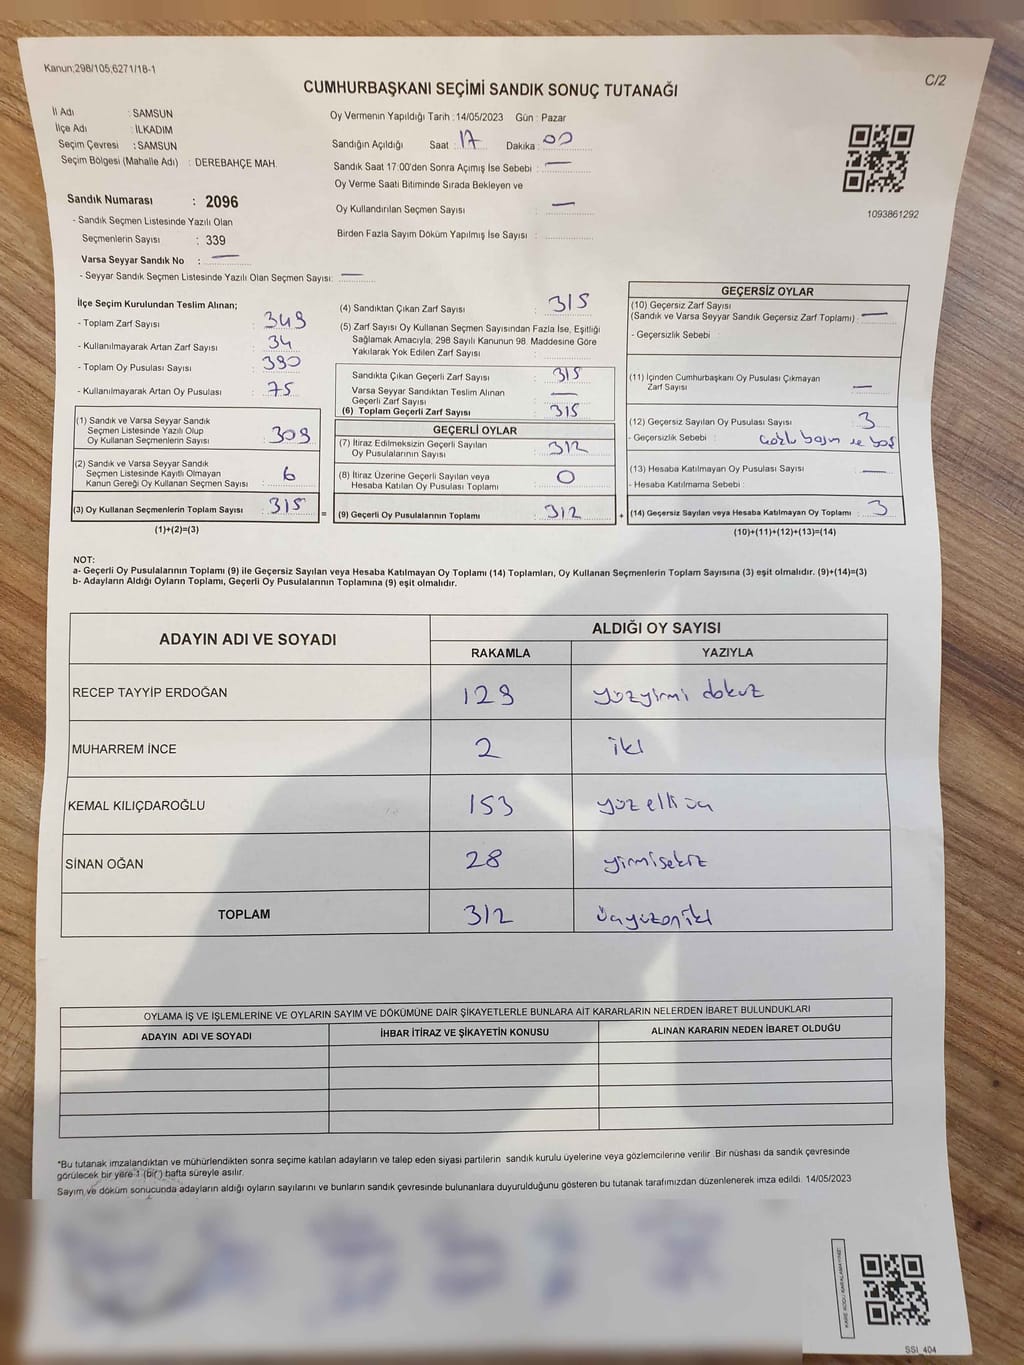 Kanun;298/105,6271/18-1
C/2
CUMHURBAŞKANI SEÇİMİ SANDIK SONUÇ TUTANAĞI
İl Adı : SAMSUN
İlçe Adı : İLKADIM
Seçim Çevresi : SAMSUN
Seçim Bölgesi (Mahalle Adı) : DEREBAHÇE MAH.
Oy Vermenin Yapıldığı Tarih : 14/05/2023 Gün : Pazar
Sandığın Açıldığı Saat : 17 Dakika : 00
Sandık Saat 17:00'den Sonra Açımış İse Sebebi : —
Oy Verme Saati Bitiminde Sırada Bekleyen ve
Oy Kullandırılan Seçmen Sayısı : —
Birden Fazla Sayım Döküm Yapılmış İse Sayısı :
1093861292
Sandık Numarası : 2096
- Sandık Seçmen Listesinde Yazılı Olan
Seçmenlerin Sayısı : 339
Varsa Seyyar Sandık No : —
- Seyyar Sandık Seçmen Listesinde Yazılı Olan Seçmen Sayısı: —
İlçe Seçim Kurulundan Teslim Alınan;
- Toplam Zarf Sayısı : 349
- Kullanılmayarak Artan Zarf Sayısı : 34
- Toplam Oy Pusulası Sayısı : 390
- Kullanılmayarak Artan Oy Pusulası : 75
(1) Sandık ve Varsa Seyyar Sandık
Seçmen Listesinde Yazılı Olup
Oy Kullanan Seçmenlerin Sayısı : 309
(2) Sandık ve Varsa Seyyar Sandık
Seçmen Listesinde Kayıtlı Olmayan
Kanun Gereği Oy Kullanan Seçmen Sayısı : 6
(3) Oy Kullanan Seçmenlerin Toplam Sayısı : 315 =
(1)+(2)=(3)
(4) Sandıktan Çıkan Zarf Sayısı : 315
(5) Zarf Sayısı Oy Kullanan Seçmen Sayısından Fazla İse, Eşitliği
Sağlamak Amacıyla, 298 Sayılı Kanunun 98. Maddesine Göre
Yakılarak Yok Edilen Zarf Sayısı :
Sandıkta Çıkan Geçerli Zarf Sayısı : 315
Varsa Seyyar Sandıktan Teslim Alınan
Geçerli Zarf Sayısı : —
(6) Toplam Geçerli Zarf Sayısı : 315
GEÇERLİ OYLAR
(7) İtiraz Edilmeksizin Geçerli Sayılan
Oy Pusulalarının Sayısı : 312
(8) İtiraz Üzerine Geçerli Sayılan veya
Hesaba Katılan Oy Pusulası Toplamı : 0
(9) Geçerli Oy Pusulalarının Toplamı : 312 +
GEÇERSİZ OYLAR
(10) Geçersiz Zarf Sayısı
(Sandık ve Varsa Seyyar Sandık Geçersiz Zarf Toplamı) : —
- Geçersizlik Sebebi :
(11) İçinden Cumhurbaşkanı Oy Pusulası Çıkmayan
Zarf Sayısı : —
(12) Geçersiz Sayılan Oy Pusulası Sayısı : 3
- Geçersizlik Sebebi : ve boş
(13) Hesaba Katılmayan Oy Pusulası Sayısı : —
- Hesaba Katılmama Sebebi :
(14) Geçersiz Sayılan veya Hesaba Katılmayan Oy Toplamı : 3
(10)+(11)+(12)+(13)=(14)
NOT:
a- Geçerli Oy Pusulalarının Toplamı (9) ile Geçersiz Sayılan veya Hesaba Katılmayan Oy Toplamı (14) Toplamları, Oy Kullanan Seçmenlerin Toplam Sayısına (3) eşit olmalıdır. (9)+(14)=(3)
b- Adayların Aldığı Oyların Toplamı, Geçerli Oy Pusulalarının Toplamına (9) eşit olmalıdır.
ADAYIN ADI VE SOYADI ALDIĞI OY SAYISI
RAKAMLA YAZIYLA
RECEP TAYYİP ERDOĞAN 129 yüzyirmi dokuz
MUHARREM İNCE 2 iki
KEMAL KILIÇDAROĞLU 153 yüzelliüç
SİNAN OĞAN 28 yirmisekiz
TOPLAM 312 üçyüzoniki
OYLAMA İŞ VE İŞLEMLERİNE VE OYLARIN SAYIM VE DÖKÜMÜNE DAİR ŞİKAYETLERLE BUNLARA AİT KARARLARIN NELERDEN İBARET BULUNDUKLARI
ADAYIN ADI VE SOYADI İHBAR İTİRAZ VE ŞİKAYETİN KONUSU ALINAN KARARIN NEDEN İBARET OLDUĞU
*Bu tutanak imzalandıktan ve mühürlendikten sonra seçime katılan adayların ve talep eden siyasi partilerin sandık kurulu üyelerine veya gözlemcilerine verilir. Bir nüshası da sandık çevresinde
görülecek bir yere 1 (bir) hafta süreyle asılır.
Sayım ve döküm sonucunda adayların aldığı oyların sayılarını ve bunların sandık çevresinde bulunanlara duyurulduğunu gösteren bu tutanak tarafımızdan düzenlenerek imza edildi. 14/05/2023
SSI_404